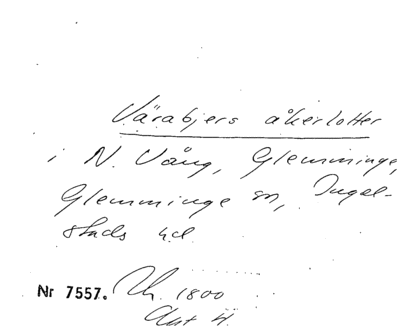 Värabjers åkerlotter
i N. Vång, Glemminge,
Glemminge sn, Ingel-
stads hd.
Nr 7557. Uh. 1800
Akt 4.